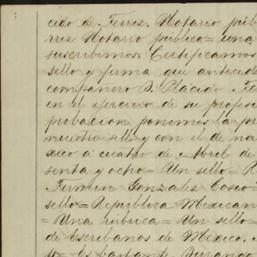 cido de Ferriz. Notario púb
rriz Notario público = una
suscribimos. Certificamos
sello y firma que antecede
compañero D. Plácido Fe
en el ejercicio de su profesi
probacion ponemos la pr
nuestro sello y con el de nu
xico a cuatro de Abril de
senta y ocho = Un sello = R
Fermin Gonzales Cosio
sello = República Mexican
= Una rúbrica = Un sello =
de Escribanos de México.
Durango